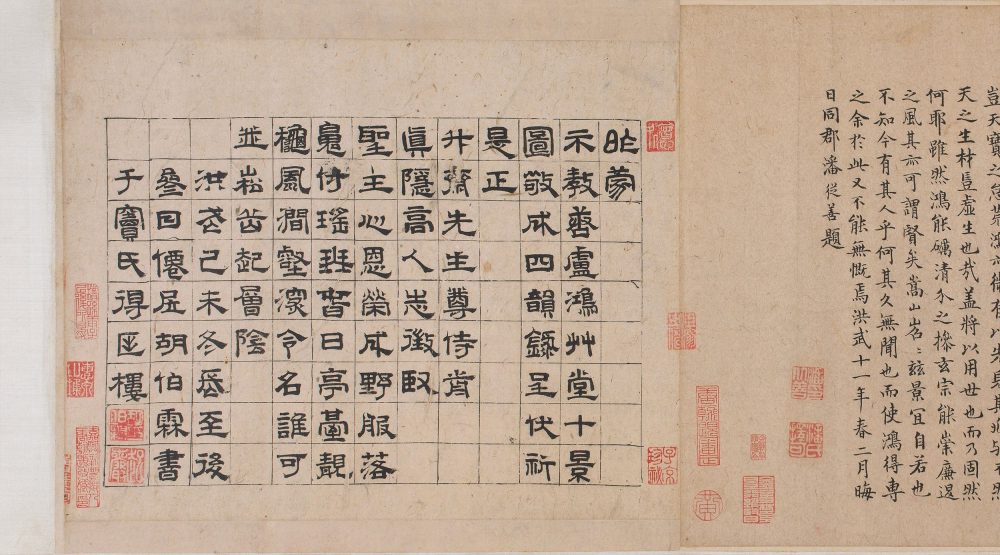 豈天寶之怠荒鴻亦微有以先見其兆与不然
天之生材豈虛生也哉盖將以用世也而乃固然
何耶雖然鴻能礪清介之操玄宗能崇廉退
之風其亦可謂賢矣嵩山嵓〻玆景宜自若也
不知今有其人乎何其久無聞也而使鴻得專
之余於此又不能無慨焉洪武十一年春二月晦
日同郡潘從善題
昨蒙
示教善盧鴻艸堂十景
圖敬成四韻錄呈伏祈
是正
升齋先生尊侍肯
眞隱高人志徵臤
聖主心恩榮成野服落
侍瑤班昔日亭臺靚
龝風澗壑深令名誰可
並崧起層陰
洪武己未冬長至後
叄日僊居胡伯霖書
于竇氏得匡樓